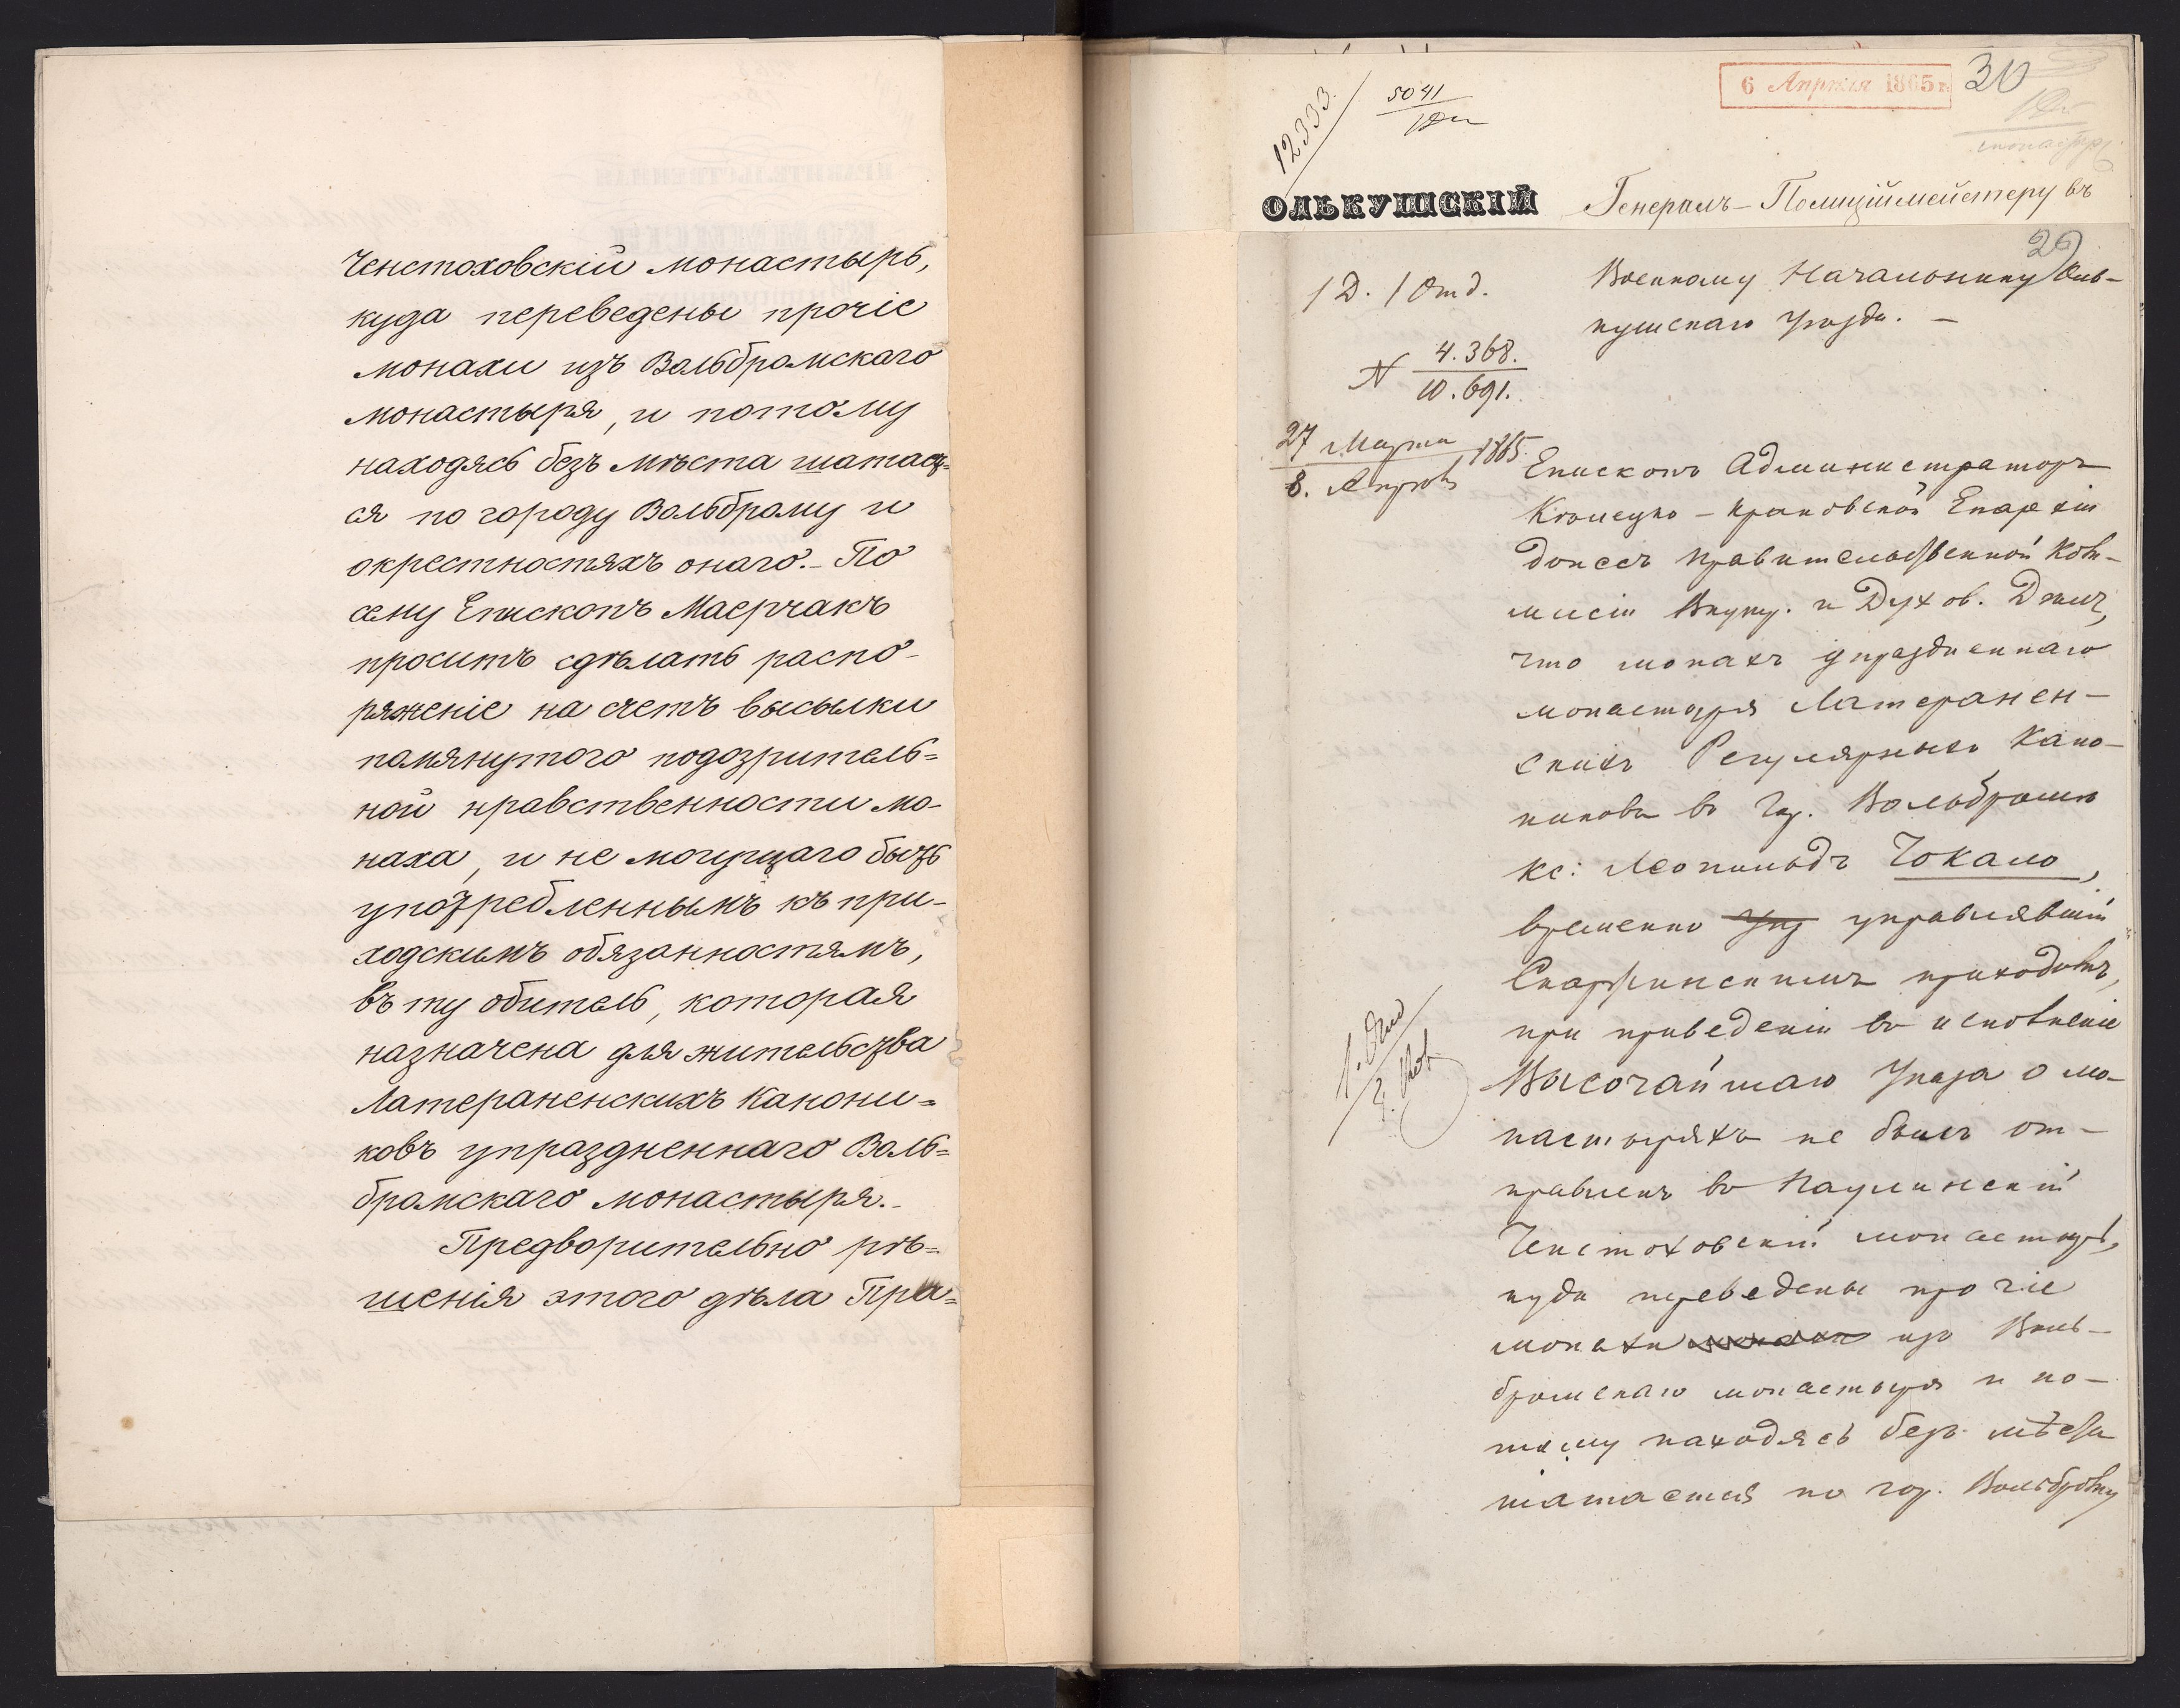 Ченстоховскій монастырь,
куда переведены прочіе
монахи изъ Вольбромскаго
монастыря, и потому
находясь безъ мѣста шатает=
ся по городу Вольброму и
окрестностяхъ онаго.- По
сему Епископъ Маерчакъ
проситъ сдѣлать распо-
ряженіе на счетъ высылки
помянутого подозритель=
ной нравственности мо-
наха, и не могущаго быть
употребленнымъ къ при-
ходскимъ обязанностямъ,
въ ту обитель, которая
назначена для жительства
Латераненскихъ Канони=
ковъ упраздненнаго Воль=
бромскаго монастыря.-
Предворительно рѣ=
шенія этого дѣла Пра=
6 Апрѣля 1865 г.
30
12333
5041
монастыр.
ОЛЬКУШСКІЙ
Генералъ-Полиціймейстеру въ
29
1 Д. 1 Отд.
Военному Начальнику Оль-
кушскаго Уѣзда. -
N 4.368.
10.691.
27 Марта 1865
8. Апрѣля
Епископъ Администраторъ
Кѣлецко-Краковской Епархіи
донесъ Правительственной Ком-
мисіи Внутр. и Духов. Дѣлъ,
что монахъ упраздненнаго
монастыря Латеранен-
скихъ Регулярныхъ Кано-
никовъ въ Гор. Вольбромѣ
Кс: Леопольдъ Чокало,
временно управлявшій
приходомъ,
при приведеніи въ исполненіе
Высочайшаго Указа о мо-
настыряхъ не былъ от-
правленъ въ Паулинскій
Ченстоховскій монастырь,
куда переведены прочіе
монахи изъ Воль-
бромскаго монастыря и по-
тому находясь безъ мѣста
шатается по гор. Вольброму